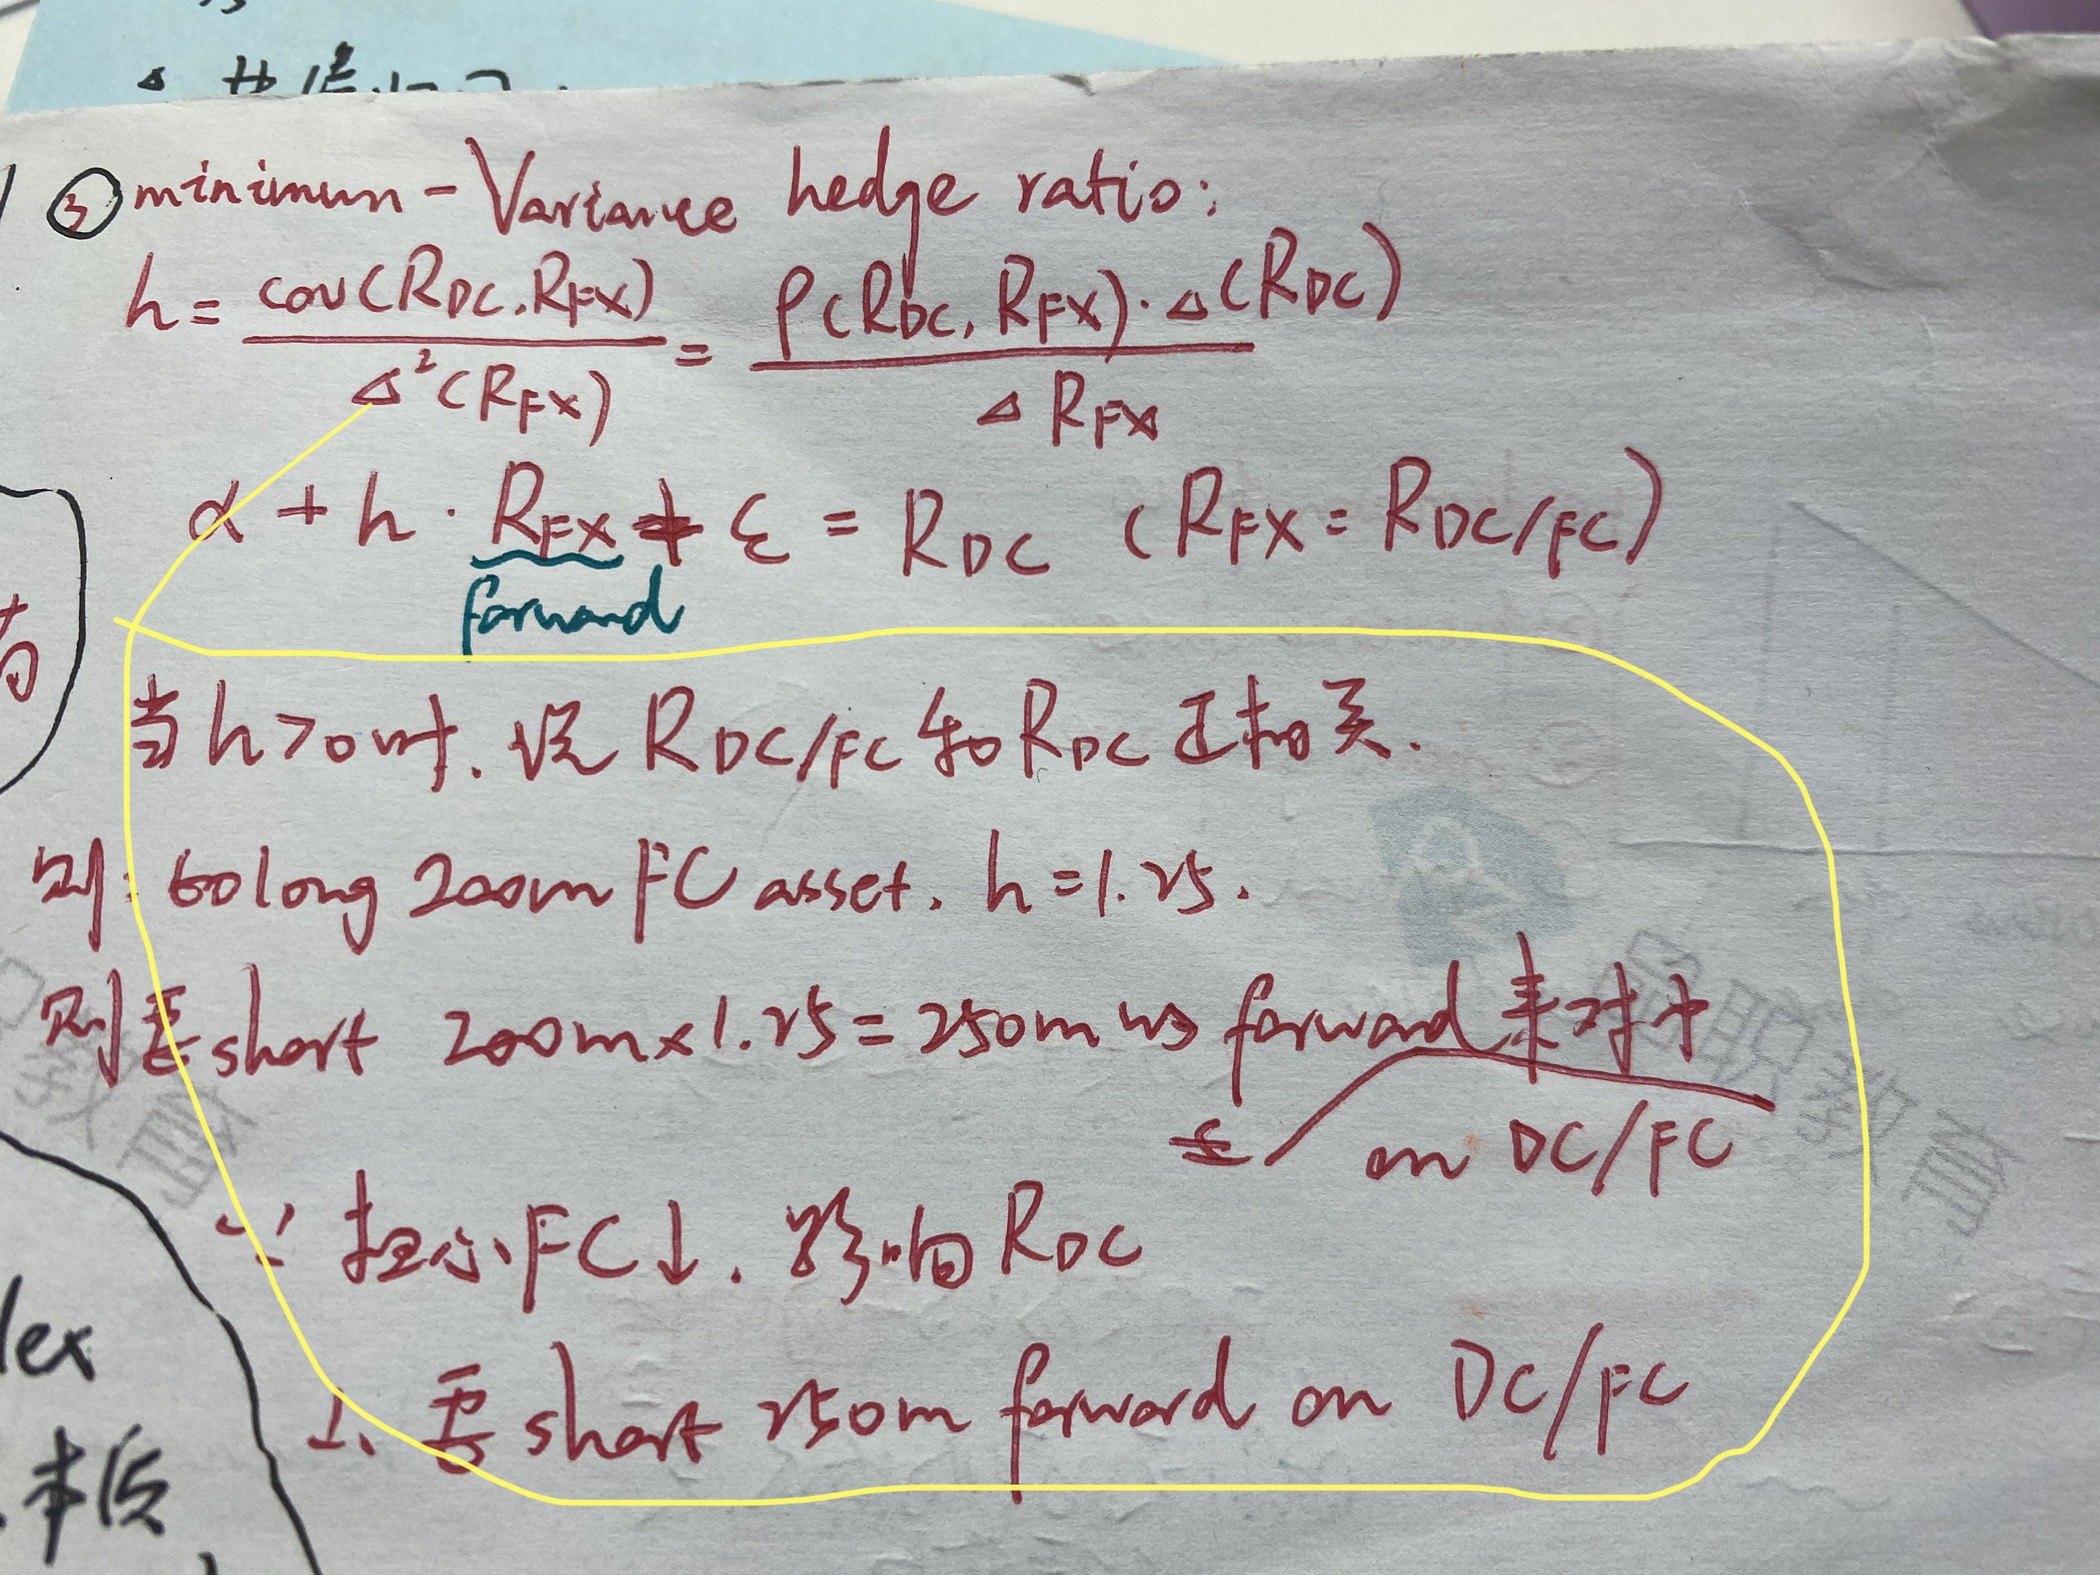 ③ minimum - Variance hedge ratio:
h = cov(RDC, RFX) / Δ²(RFX) = ρ(RDC, RFX) · Δ(RDC) / Δ RFX
α + h · RFX + ε = RDC (RFX = RDC/FC)
forward
当 h>0 时. 说 RDC/FC 和 RDC 正相关.
则: Go long 200m FC asset. h=1.25.
则要 short 200m×1.25=250m 的 forward 来对冲
on DC/FC
∵ 担心 FC↓. 影响 RDC
∴ 要 short 250m forward on DC/FC
dex
本质